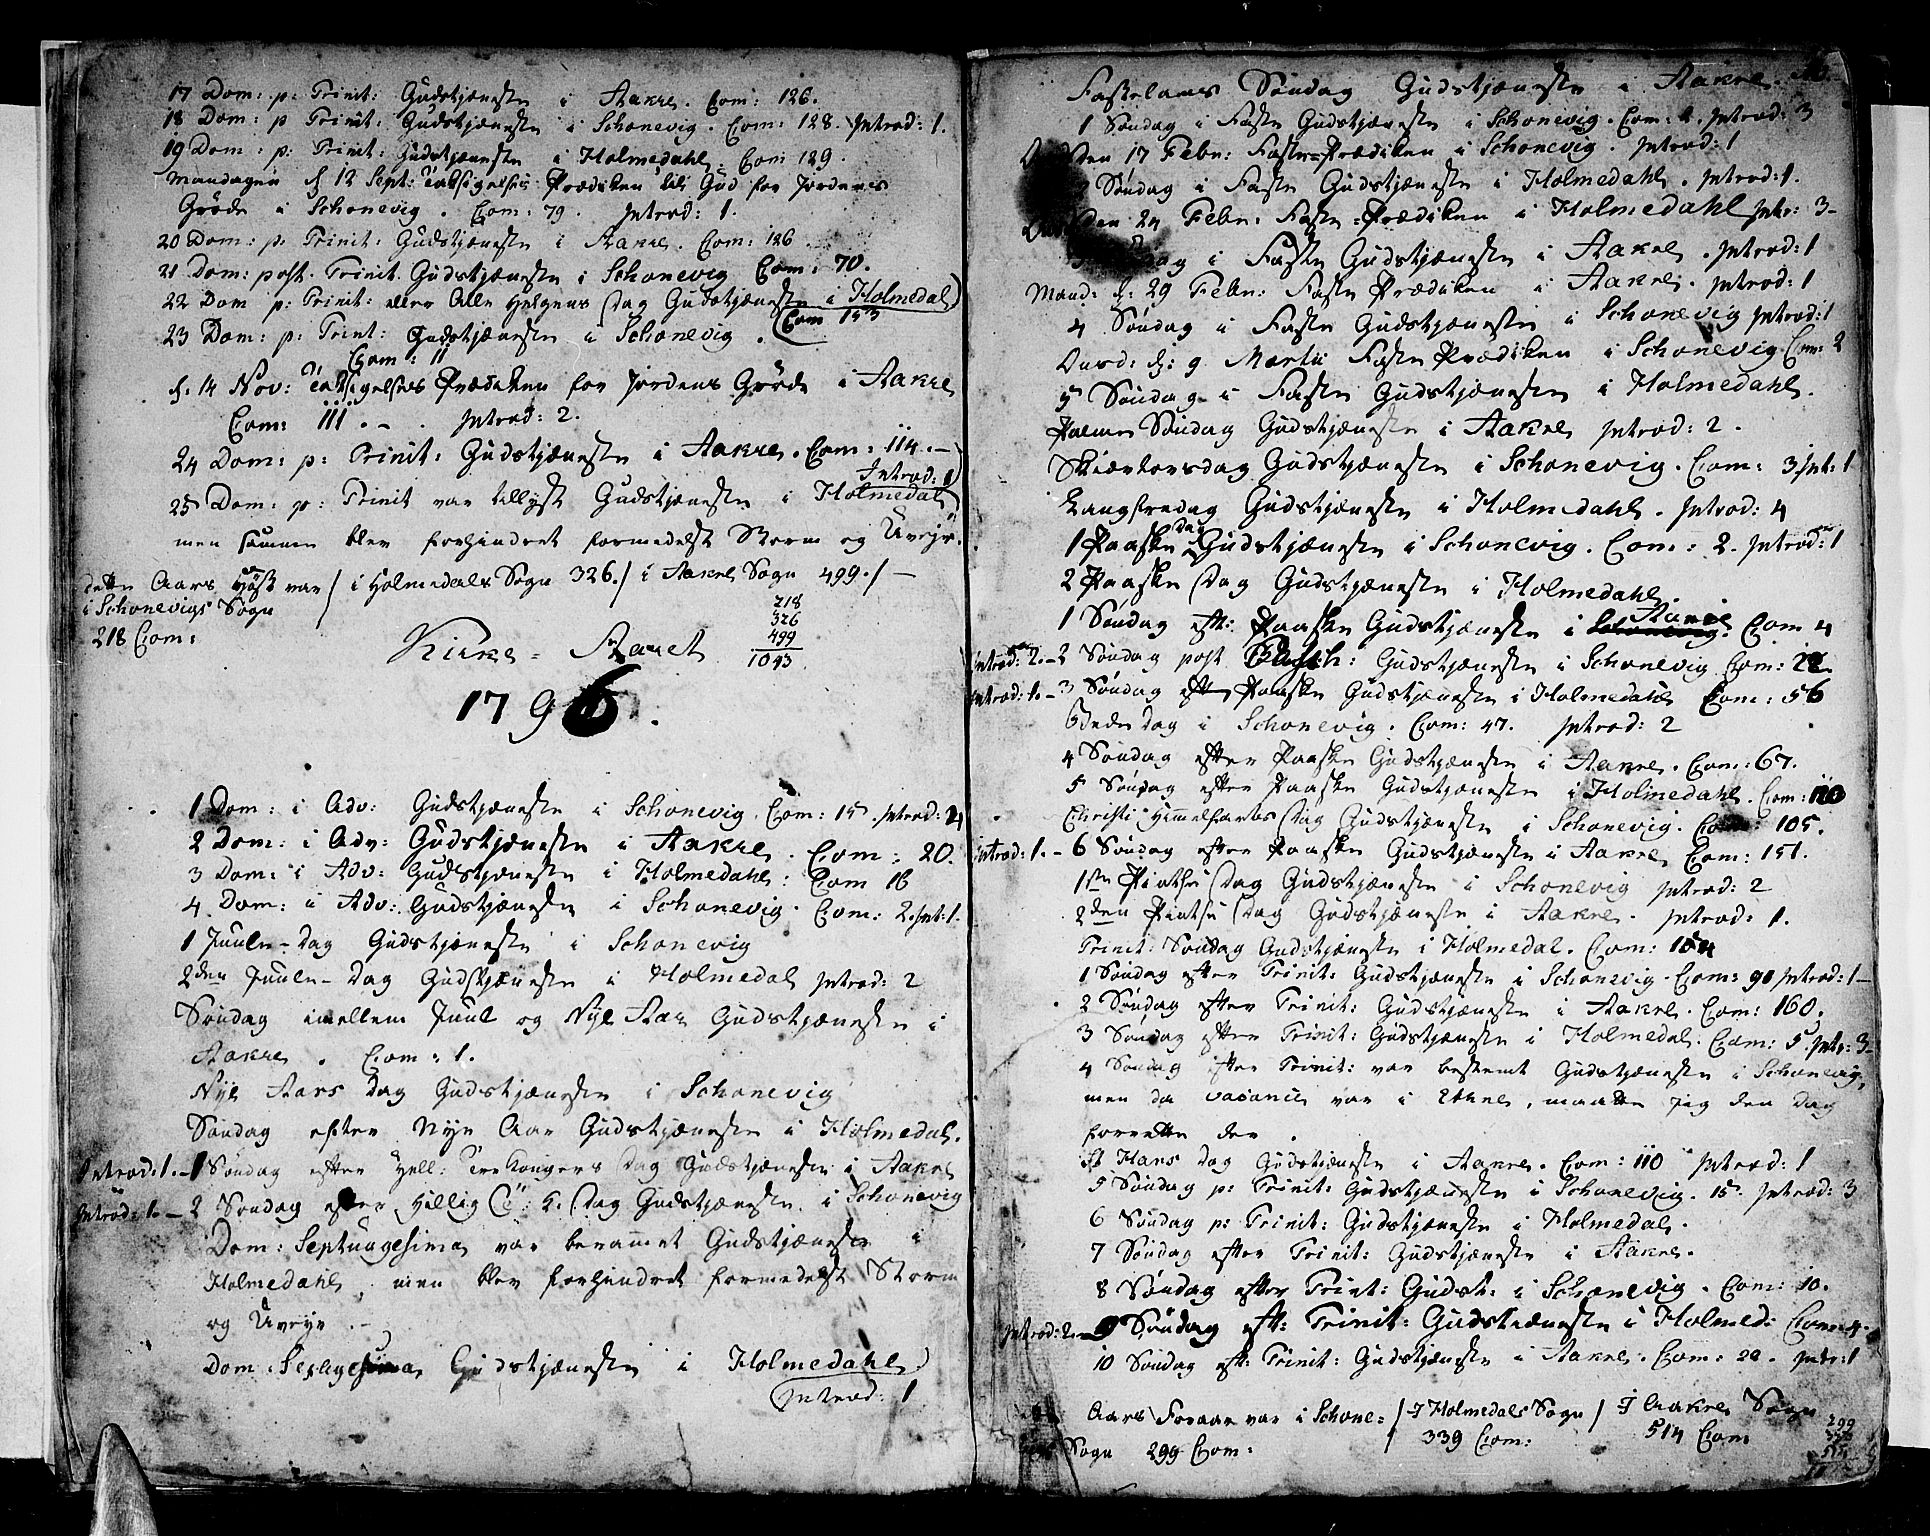 17 Dom: p: Trinit: Gudstjæneste i Aakre. Com: 126.
18 Dom: p Trinit: Gudstjæneste i Schonevig. Com: 128. Introd: 1.
19 Dom: p: Trinit: Gudstjæneste i Holmedahl. Com 129.
Mandagen d. 12 Sept: Taksigelses Prædiken til Gud for Jordens
Grøde i Schonevig. Com: 79. Introd: 1.
20 Dom: p: Trinit: Gudstjæneste i Aakre. Com: 126
21 Dom: post. Trinit Gudstjæneste i Schonevig Com: 70.
22 Dom p: Trinit: eller Alle Helgens Dag Gudstjæneste i Holmedal
Com 153
23 Dom: p: Trint: Gudstjæneste i Schonevig.
Com: 11
d. 14 Nov: Taksigelses Prædiken for Jordens Grøde i Aakre
Com: 111. - . Introd: 2.
24 Dom: p: Trinit: Gudstjæneste i Aakre. Com: 114. -
Introd: 1
25 Dom: p: Trinit var tillyst Gudstjæneste i Holmedal
men samme blev forhindret formedelst Storm og Uvejr.
dette Aars Høst var / i Holmedals Sogn 326. / i Aakre Sogn 499. / -
i Schonevigs Sogn
218 Com:
218
326
499
1043
Kirke-Aaret
1796.
1 Dom: i Adv: Gudstjæneste i Schonevig. Com: 15. Introd: 2
2 Dom: i Adv: Gudstjæneste i Aakre. Com: 20.
3 Dom: i Adv: Gudstjæneste i Holmedahl: Com 16
4 Dom: i Adv: Gudstjæneste i Schonevig. Com: 2. Int: 1.
1 Juule-Dag Gudstjæneste i Schonevig
2den Juule-Dag Gudstjæneste i Holmedal Introd: 2
Søndag imellem Juul og Nye Aar Gudstjæneste i
Aakre. Com: 1.
Nye Aars Dag Gudstjæneste i Schonevig
Søndag efter Nye Aar Gudstjæneste i Holmedal.
Introd: 1. - 1 Søndag efter Hell: Tre Kongers Dag Gudstjæneste i Aakre
Introd: 1. - 2 Søndag efter Hellig 3 K. Dag Gudstjæneste i Schonevig
Dom: Septuagesima var berammet Gudstjæneste i
Holmedahl, men blev forhindret formedelst Storm
og Uvejr.
Dom: Sexagesima Gudstjæneste i Holmedahl
Introd: 1
Fastelavns Søndag Gudstjæneste i Aakre.
1 Søndag i Faste Gudstjæneste i Schonevig. Com: 2. Introd: 3
den 17 Febr: Faste-Prædiken i Schonevig. Introd: 1
Søndag i Faste Gudstjæneste i Holmedahl. Introd: 1.
den 24 Febr: Faste-Prædiken i Holmedahl Intr: 3-
i Faste Gudstjæneste i Aakre. Introd: 1
Mand: d: 29 Febr: Faste Prædiken i Aakre. Introd: 1
4 Søndag i Faste Gudstjæneste i Schonevig Introd: 1
Onsd: d: 9 Martii Faste Prædiken i Schonevig Com: 2
5 Søndag i Faste Gudstjæneste i Holmedahl.
Palme Søndag Gudstjæneste i Aakre Introd: 2.
Skiærtorsdag Gudstjæneste i Schonevig. Com: 3 Int: 1
Langfredag Gudstjæneste i Holmedahl. Introd: 4
1 Paaske Dag Gudstjæneste i Schonevig. Com: 2. Introd: 1
2 Paaske Dag Gudstjæneste i Holmedahl
1 Søndag eft: Paaske Gudstjæneste i Schonevig Aakre. Com 4
Introd: 2. - 2 Søndag post Pasch: Gudstjæneste i Schonevig Com: 22
Introd: 1. - 3 Søndag efter Paaske Gudstjæneste i Holmedahl Com: 56
Bededag i Schonevig. Com: 47. Introd: 2
4 Søndag efter Paaske Gudstjæneste i Aakre. Com: 67.
5 Søndag efter Paaske Gudstjæneste i Holmedahl. Com: 110
Christi Himmelfarts Dag Gudstjæneste i Schonevig. Com: 105.
Introd: 1. - 6 Søndag efter Paaske Gudstjæneste i Aakre Com: 151.
1ste Pintse Dag Gudstjæneste i Schonevig Introd: 2
2den Pintse Dag Gudstjæneste i Aakre. Introd: 1.
Trinit: Søndag Gudstjæneste i Holmedal. Com: 154
1 Søndag efter Trinit: Gudstjæneste i Schonevig. Com: 90 Introd: 1-
2 Søndag efter Trinit: Gudstjæneste i Aakre. Com: 160.
3 Søndag efter Trinit: Gudstjæneste i Holmedal. Com: 5. Intr: 3-
4 Søndag efter Trinit: var bestemt Gudstjæneste i Schonevig,
men da Vacance var i Etne, maatte jeg den Dag
forrette der.
St Hans Dag Gudstjæneste i Aakre. Com: 110 Introd: 1
5 Søndag p: Trinit: Gudstjæneste i Schonevig. 15. Introd: 3
6 Søndag p: Trinit: Gudstjæneste i Holmedal.
7 Søndag efter Trinit: Gudstjæneste i Aakre.
8 Søndag efter Trint: Gudst: i Schonevig. Com: 10.
Introd: 2. - 9 Søndag eft: Trinit: Gudstiæneste i Holmed: Com: 4.
10 Søndag eft: Trinit: Gudstjæneste i Aakre. Com: 22. Intr: 1
Aars Foraar var i Schone= / I Holmedals Sogn / I Aakre Sogn
Sogn 299 Com: / 339 Com: 514 Com
299